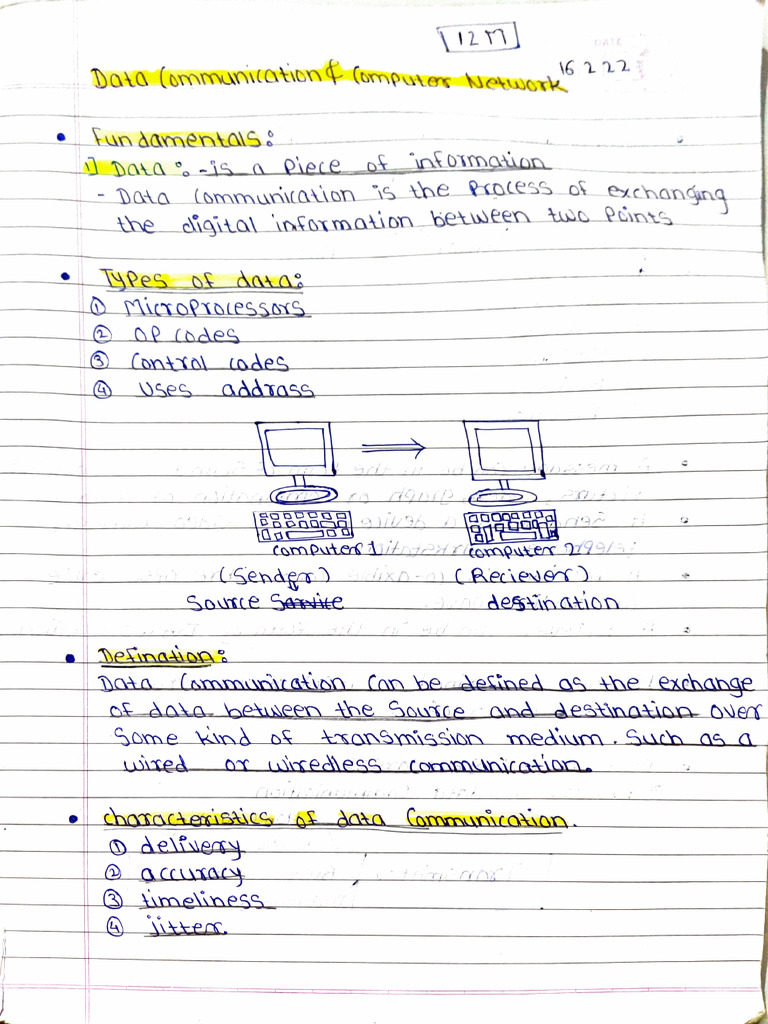 12 M
DATE
Data Communication & Computer Network 16 2 22
• Fundamentals:
1] Data: - is a Piece of information
- Data Communication is the Process of exchanging
the digital information between two Points
• Types of data:
① Microprocessors
② OP codes
③ Control codes
④ Uses address
Computer 1 Computer 2
(Sender) (Reciever)
Source Service destination
• Defination:
Data Communication Can be defined as the exchange
of data between the Source and destination over
Some kind of transmission medium. Such as a
wired or wiredless communication.
• characteristics of data Communication.
① delivery
② accuracy
③ timeliness
④ jitter.